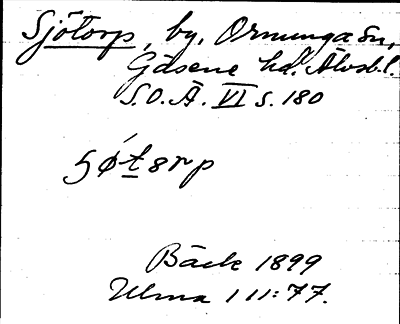 Sjötorp, by, Ornunga sn,
Gäsene hd. Älvsb.l.
S.O.Ä. VI s. 180
Bäck 1899
Ulma 111:77.